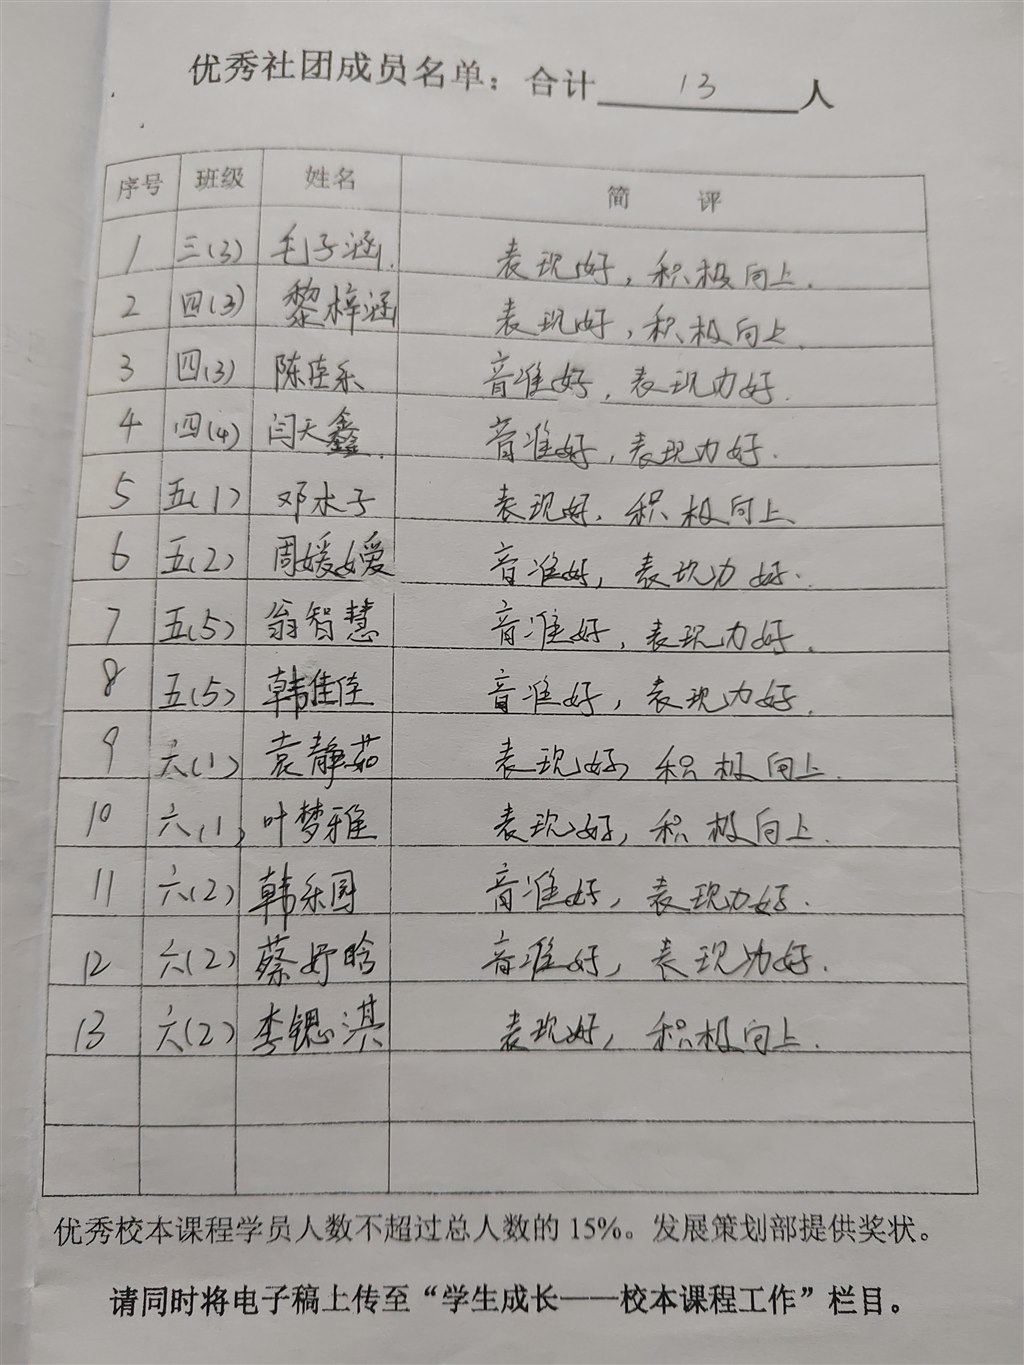 优秀社团成员名单：合计 13 人
序号 班级 姓名 简 评
1 三(3) 毛子涵. 表现好，积极向上.
2 四(3) 黎梓涵 表现好，积极向上.
3 四(3) 陈佳乐 音准好，表现力好.
4 四(4) 闫天鑫. 音准好，表现力好.
5 五(1) 邓木子 表现好，积极向上、
6 五(2) 周媛媛 音准好，表现力好.
7 五(5) 翁智慧 音准好，表现力好.
8 五(5) 韩佳佳 音准好，表现力好.
9 六(1) 袁静茹 表现好，积极向上.
10 六(1) 叶梦雅 表现好，积极向上.
11 六(2) 韩乐园 音准好，表现力好.
12 六(2) 蔡妤晗 音准好，表现力好.
13 六(2) 李锶淇 表现好，积极向上.
优秀校本课程学员人数不超过总人数的15%。发展策划部提供奖状。
请同时将电子稿上传至“学生成长——校本课程工作”栏目。